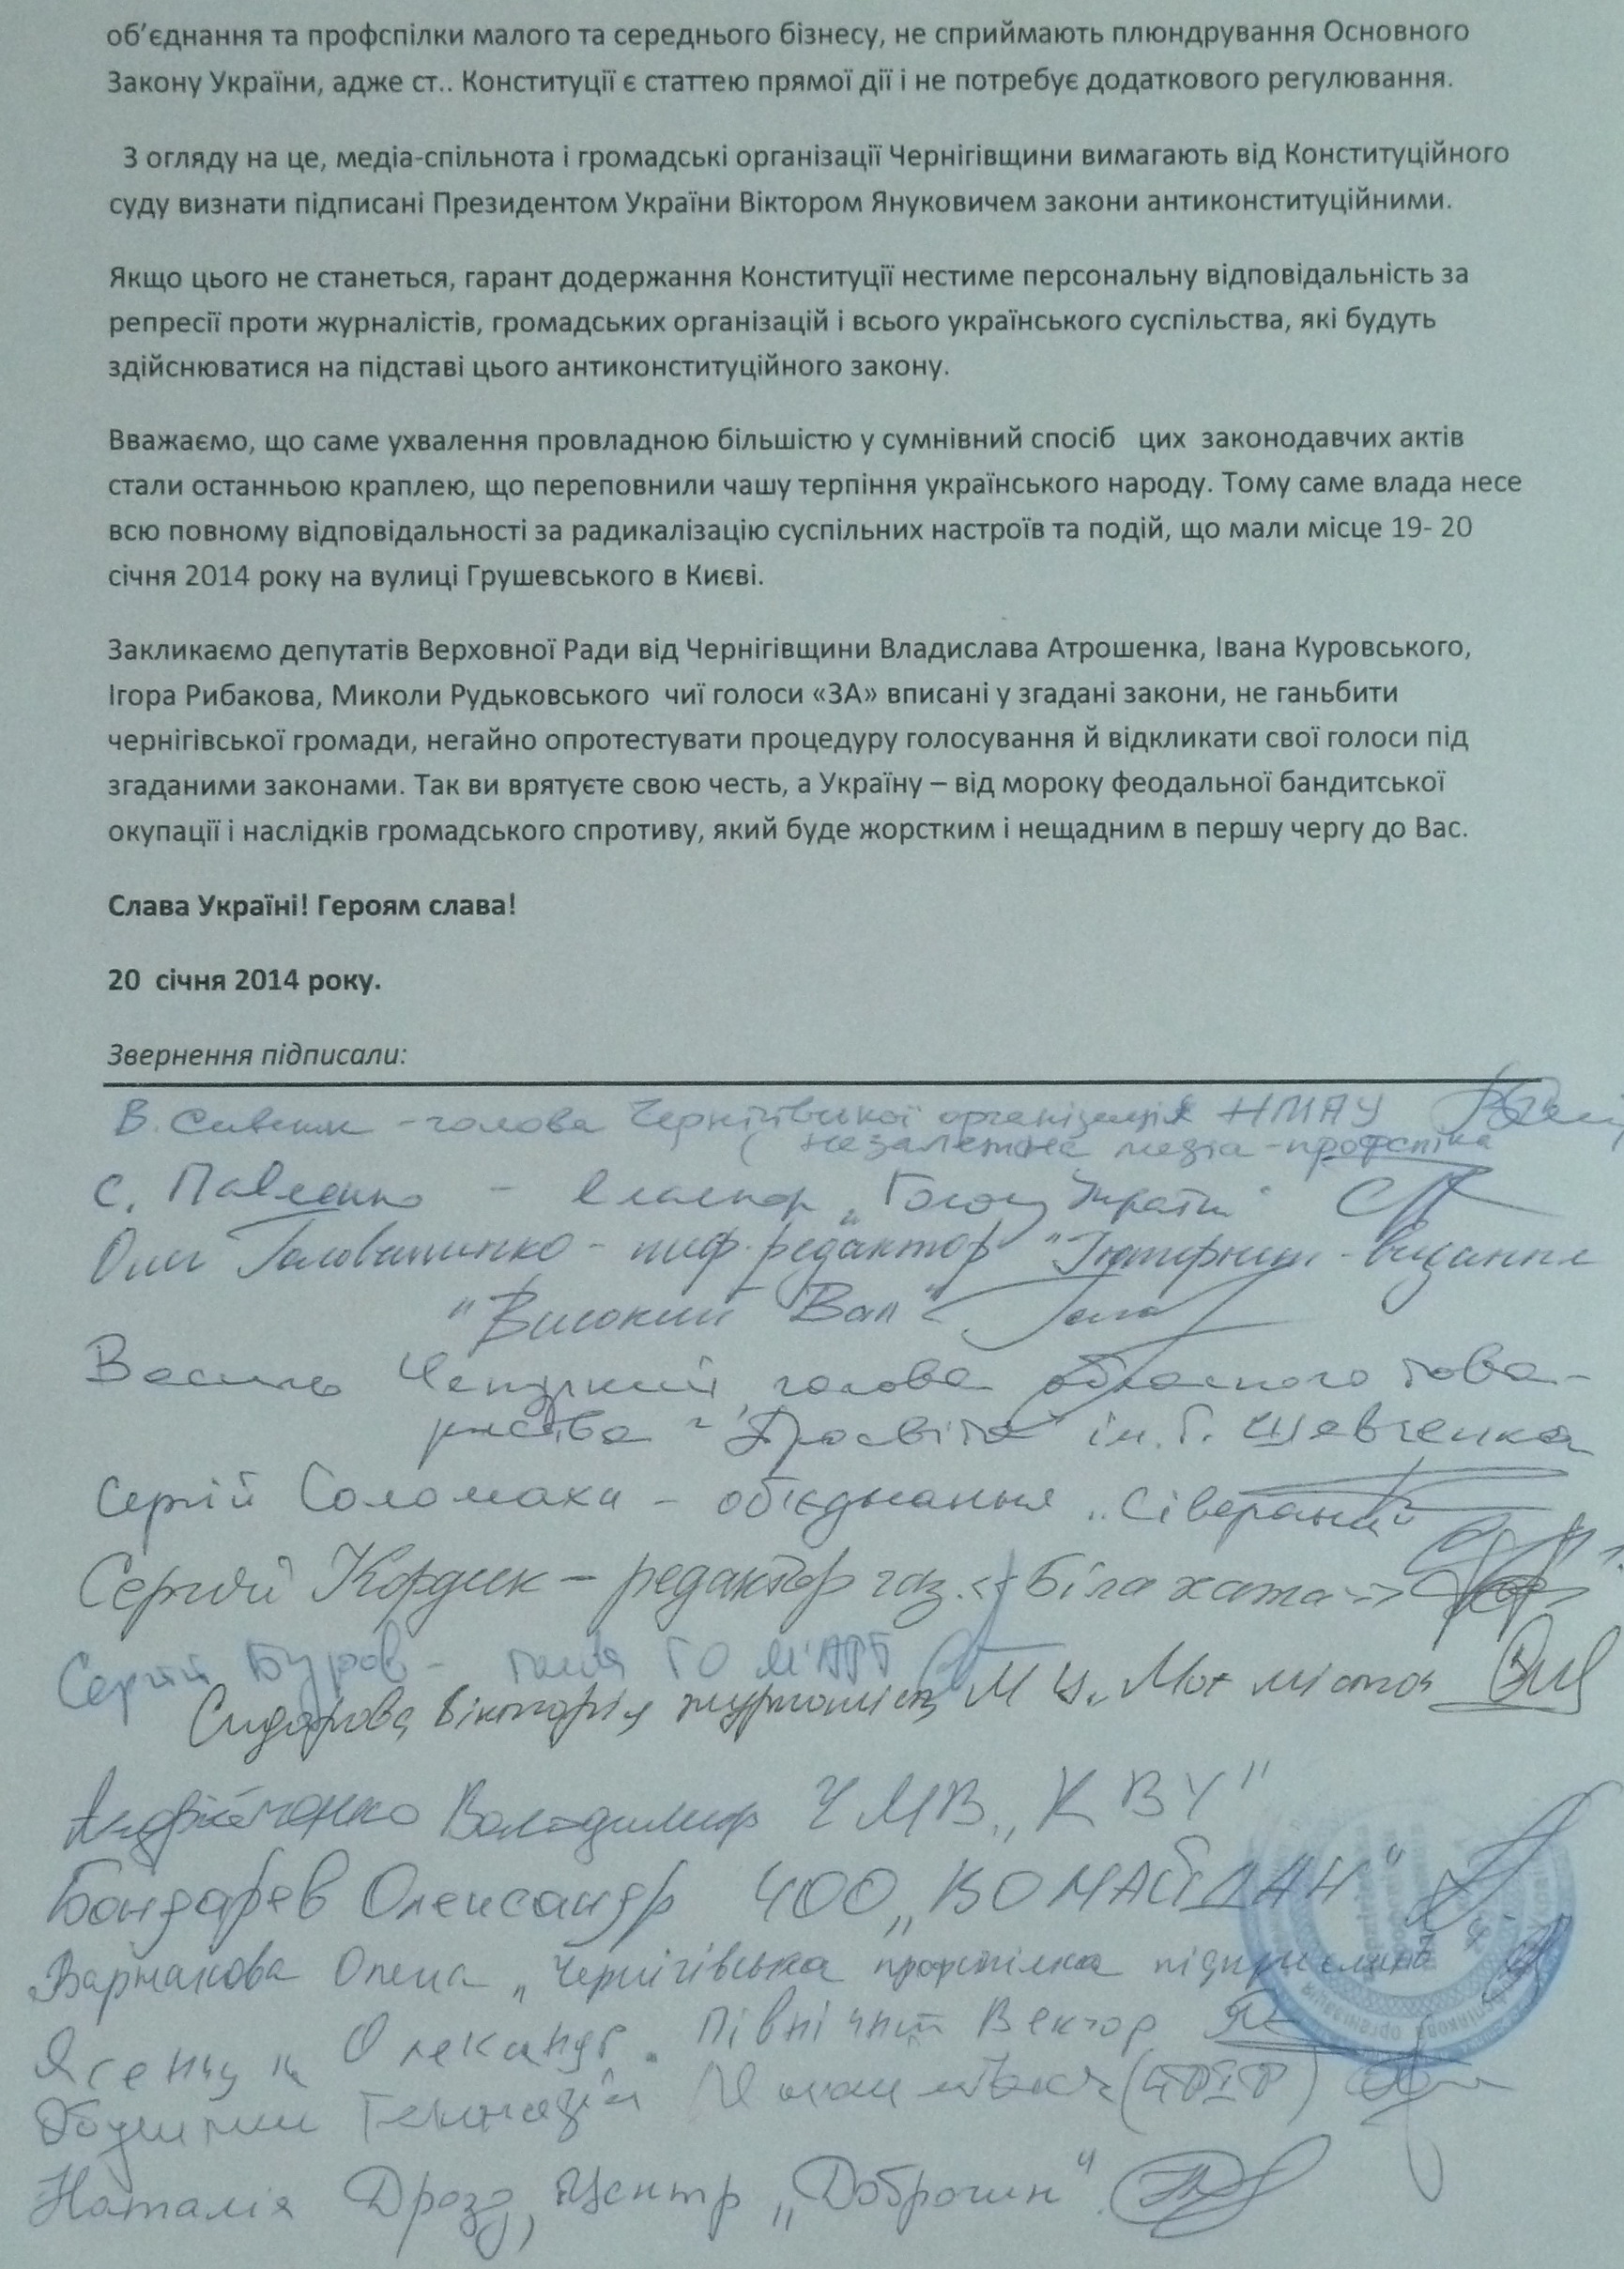 об’єднання та профспілки малого та середнього бізнесу, не сприймають плюндрування Основного
Закону України, адже ст.. Конституції є статтею прямої дії і не потребує додаткового регулювання.
З огляду на це, медіа-спільнота і громадські організації Чернігівщини вимагають від Конституційного
суду визнати підписані Президентом України Віктором Януковичем закони антиконституційними.
Якщо цього не станеться, гарант додержання Конституції нестиме персональну відповідальність за
репресії проти журналістів, громадських організацій і всього українського суспільства, які будуть
здійснюватися на підставі цього антиконституційного закону.
Вважаємо, що саме ухвалення провладною більшістю у сумнівний спосіб цих законодавчих актів
стали останньою краплею, що переповнили чашу терпіння українського народу. Тому саме влада несе
всю повному відповідальності за радикалізацію суспільних настроїв та подій, що мали місце 19- 20
січня 2014 року на вулиці Грушевського в Києві.
Закликаємо депутатів Верховної Ради від Чернігівщини Владислава Атрошенка, Івана Куровського,
Ігора Рибакова, Миколи Рудьковського чиї голоси «ЗА» вписані у згадані закони, не ганьбити
чернігівської громади, негайно опротестувати процедуру голосування й відкликати свої голоси під
згаданими законами. Так ви врятуєте свою честь, а Україну – від мороку феодальної бандитської
окупації і наслідків громадського спротиву, який буде жорстким і нещадним в першу чергу до Вас.
Слава Україні! Героям слава!
20 січня 2014 року.
Звернення підписали:
В. - голова Чернігівської організація НМПУ
( незалежна медіа-профспілка
С. Павленко - власкор „Голос України"
Олег Головатенко - шеф-редактор "Інтернет-видання
"Високий Вал"
Василь Чепурний, голова обласного това-
риства "Просвіта" ім. Т. Шевченка
Сергій Соломаха - об'єднання „Сіверяни"
Сергій Кордик - редактор газ. «Біла хата»
Сергій Буров - голова ГО М'АРТ
Сидорова Вікторія журналіст МЦ „Моє місто"
Андрійченко Володимир ЧМВ „КВУ"
Бондарев Олександр ЧОО „ВО МАЙДАН"
Варнакова Олена „Чернігівська профспілка підприємців
Ясенчук Олександр. Північний Вектор
Геннадій
Наталія Дрозд, Центр „Доброчин"